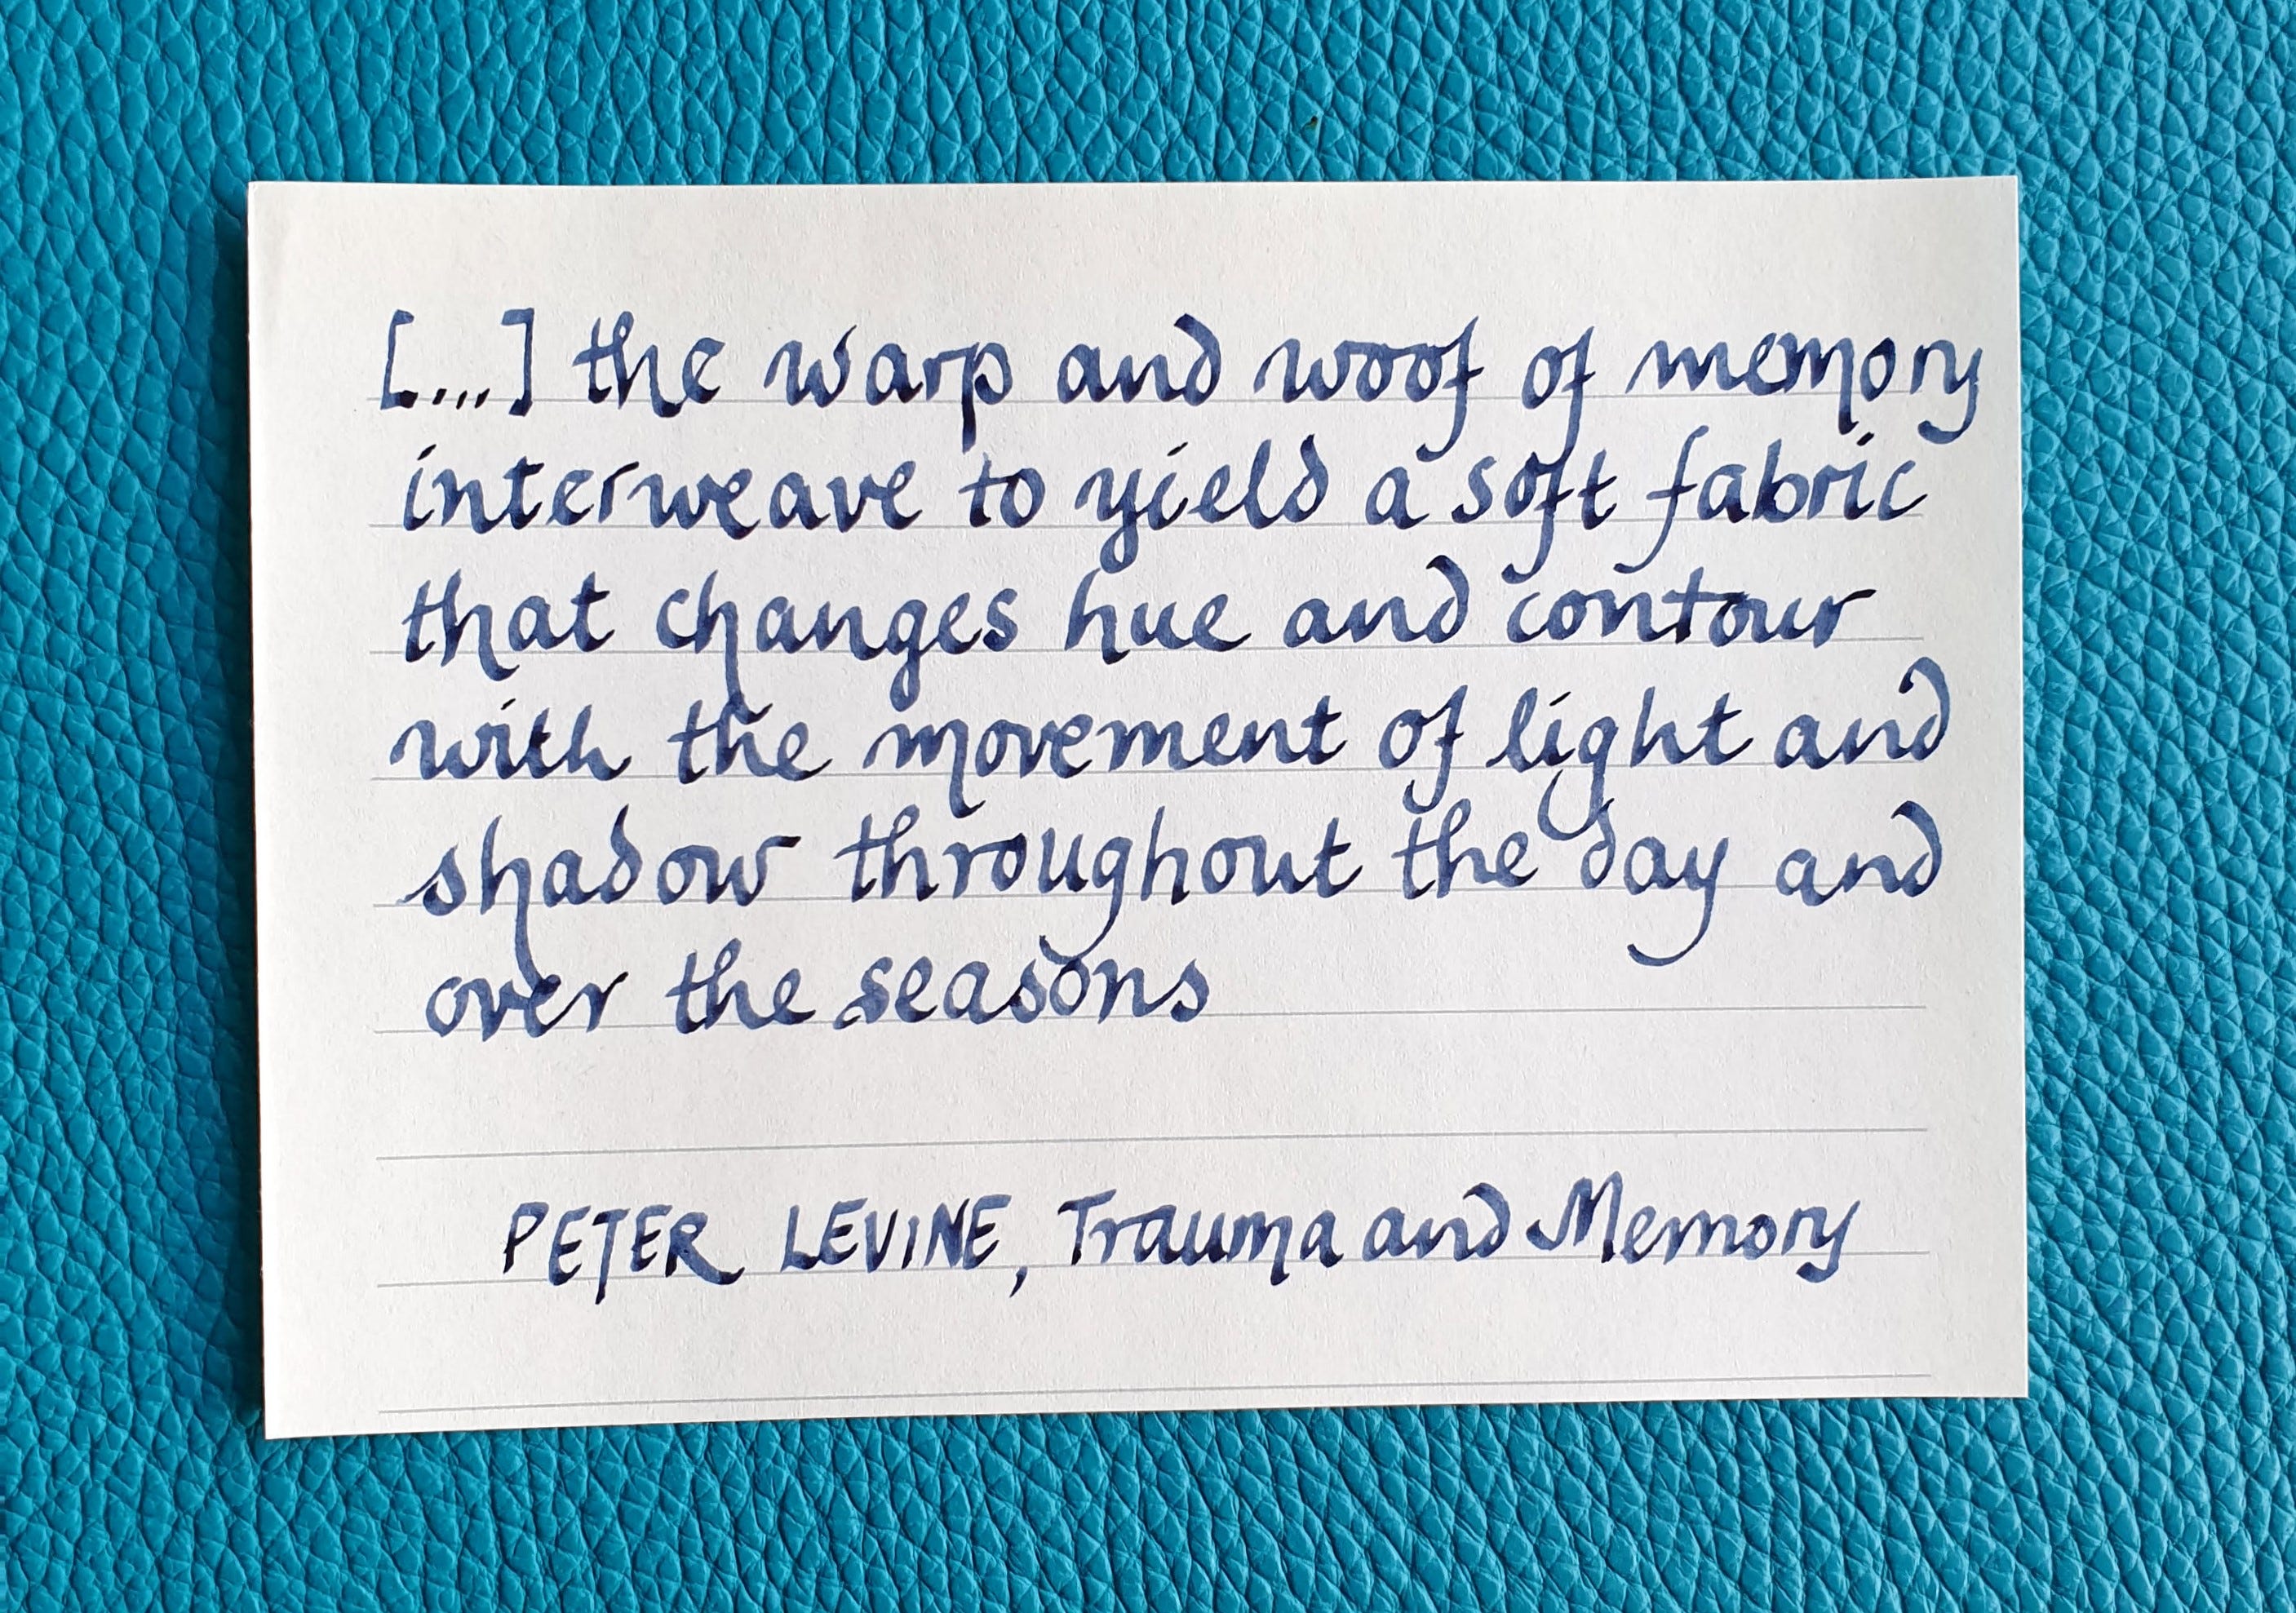 [...] the warp and woof of memory
interweave to yield a soft fabric
that changes hue and contour
with the movement of light and
shadow throughout the day and
over the seasons
PETER LEVINE, Trauma and Memory